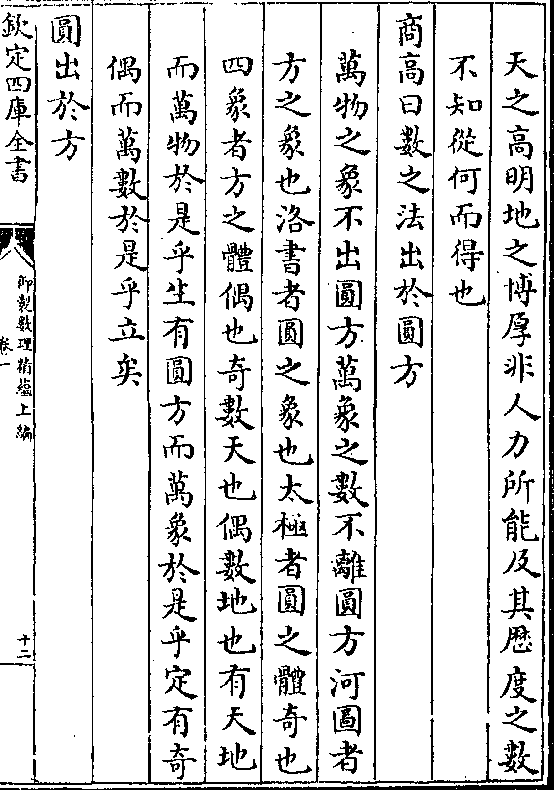 天之高明地之博厚非人力所能及其歴度之數
不知從何而得也
商高曰數之法出於圓方
萬物之象不出圓方萬象之數不離圓方河圖者
方之象也洛書者圓之象也太極者圓之體奇也
四象者方之體偶也奇數天也偶數地也有天地
而萬物於是乎生有圓方而萬象於是乎定有奇
偶而萬數於是乎立矣
圓出於方
欽定四庫全書
御製數理精藴上編
卷一
十二